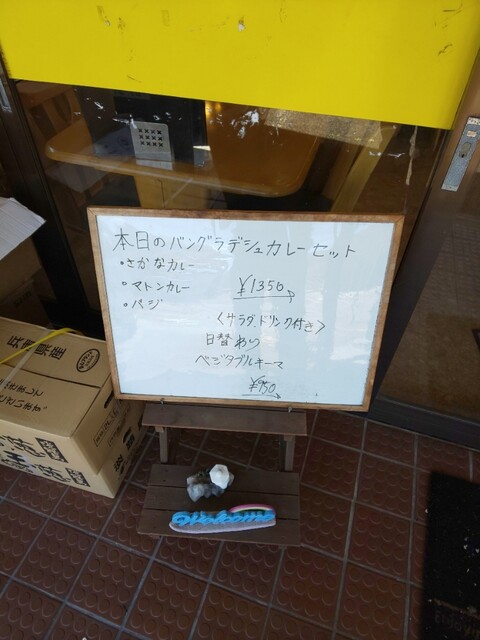 本日のバングラデシュカレーセット
・さかなカレー
・マトンカレー
・バジ
¥1350
〈サラダ、ドリンク付き〉
日替わり
ベジタブルキーマ
¥950
Welcome
兵庫県産